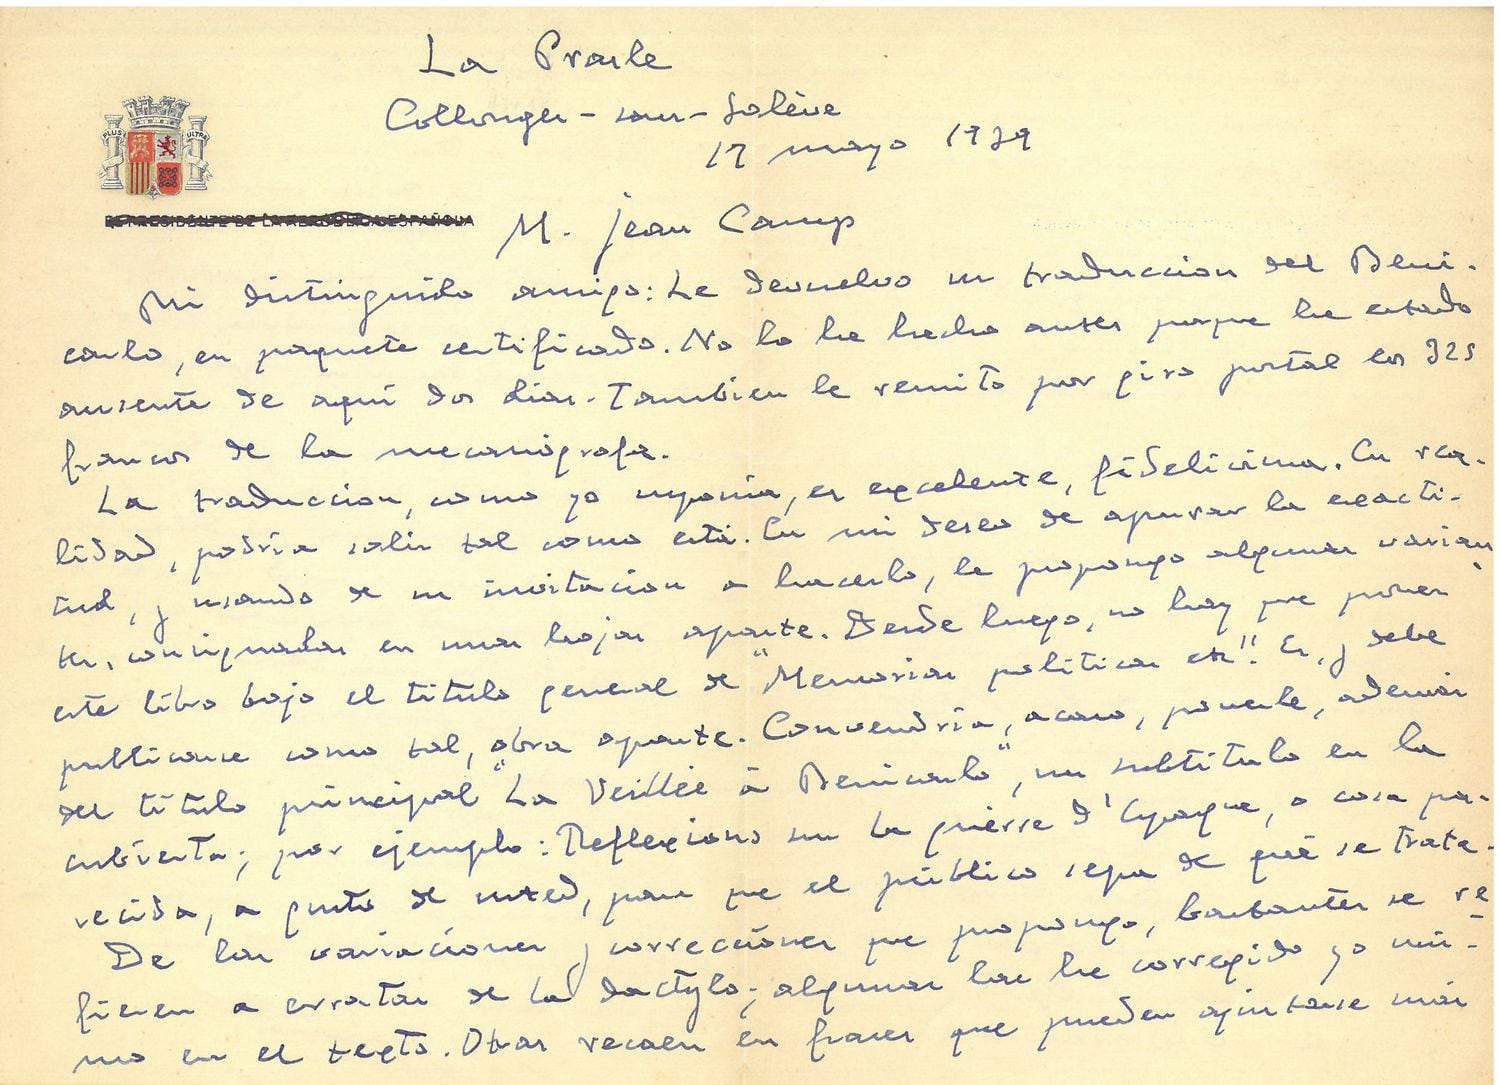 La Prasle
Collonges-sous-Salève
17 mayo 1939
PLUS ULTRA
EL PRESIDENTE DE LA REPÚBLICA ESPAÑOLA
M. Jean Camp
Mi distinguido amigo: Le devuelvo su traduccion del Beni-
carlo, en paquete certificado. No lo he hecho antes porque he estado
ausente de aquí dos dias. Tambien le remito por giro postal los 325
francos de la mecanógrafa.
La traduccion, como yo suponia, es excelente, fidelicima. En rea-
lidad, podria salir tal como está. En mi deseo de apurar la exacti-
tud, y usando de su invitacion a hacerlo, le propongo algunas varian
tes, consignadas en unas hojas aparte. Desde luego, no hay que poner
este libro bajo el titulo general de "Memorias politicas etc". Es, y debe
publicarse como tal, obra aparte. Convendria, acaso, ponerle, además
del título principal "La Veillée à Benicarlo", un subtítulo en la
cubierta; por ejemplo: Reflexions sur la guerre d'Espagne, o cosa pa-
recida, a gusto de usted, para que el público sepa de qué se trata.
De las variaciones y correcciones que propongo, bastantes se re
fieren a erratas de la dactylo; algunas las he corregido yo mis-
mo en el texto. Otras recaen en frases que pueden ajustarse más